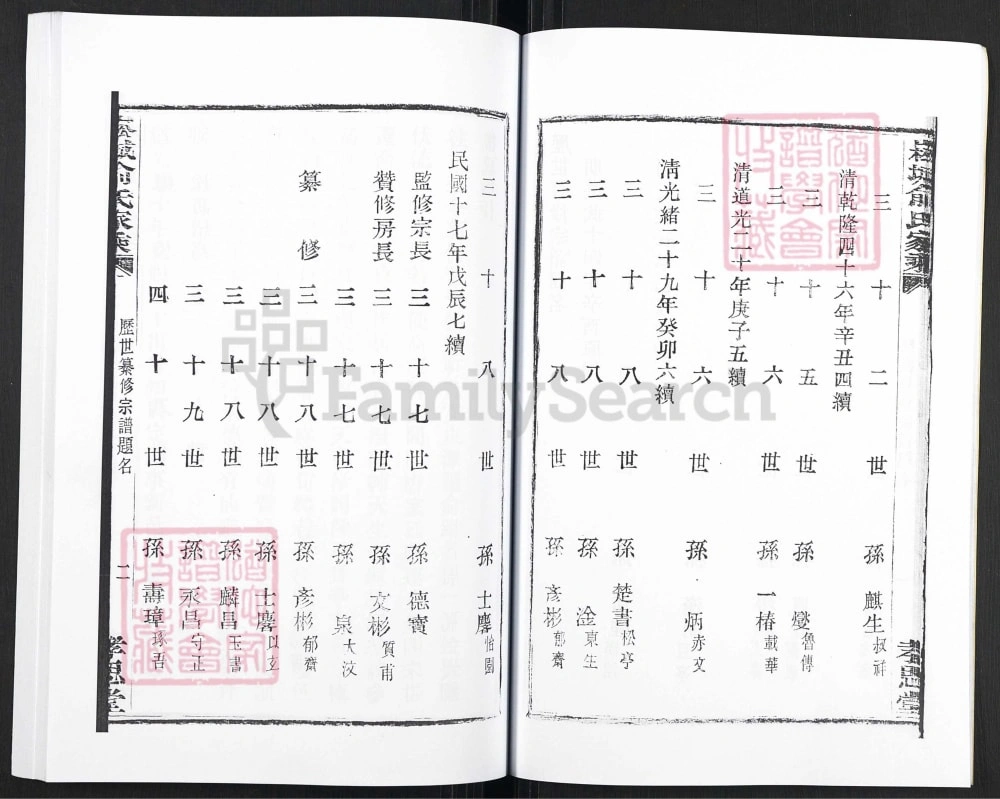 三十二世孫麒生叔祥
清乾隆四十六年辛丑四續
三十五世孫燮魯傳
三十六世孫一椿載華
清道光二十年庚子五續
三十六世孫炳赤文
清光緒二十九年癸卯六續
三十八世孫楚書松亭
三十八世孫淦東生
三十八世孫彥彬郁齋
孝思堂
三十八世孫士麐怡園
民國十七年戊辰七續
監修宗長三十七世孫德寶
贊修房長三十七世孫文彬質甫
三十七世孫泉大汶
纂修三十八世孫彥彬郁齋
三十八世孫士麐以玄
三十八世孫麟昌玉書
三十九世孫永昌守正
四十世孫壽璋琢吾
俞氏家乘
歷世纂修宗譜題名
二
孝思堂
FamilySearch